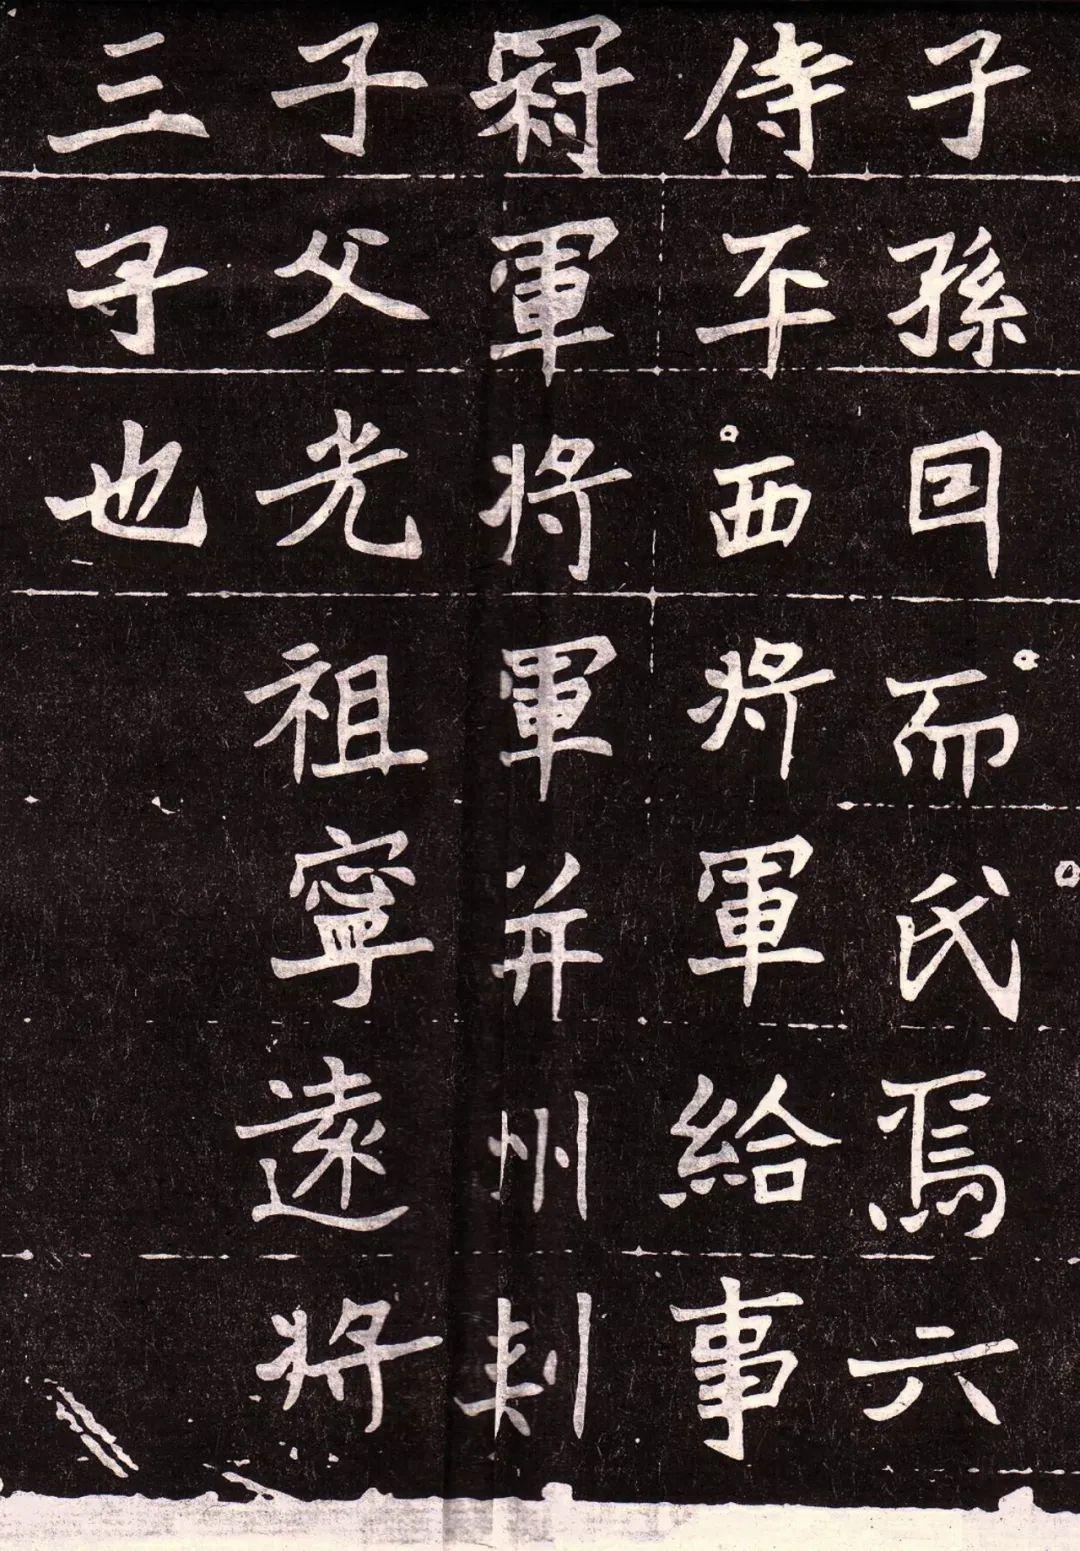 子孫囙而氏焉六
侍平西將軍給事
冠軍將軍并州刺
子父光祖寧遠將
三子也